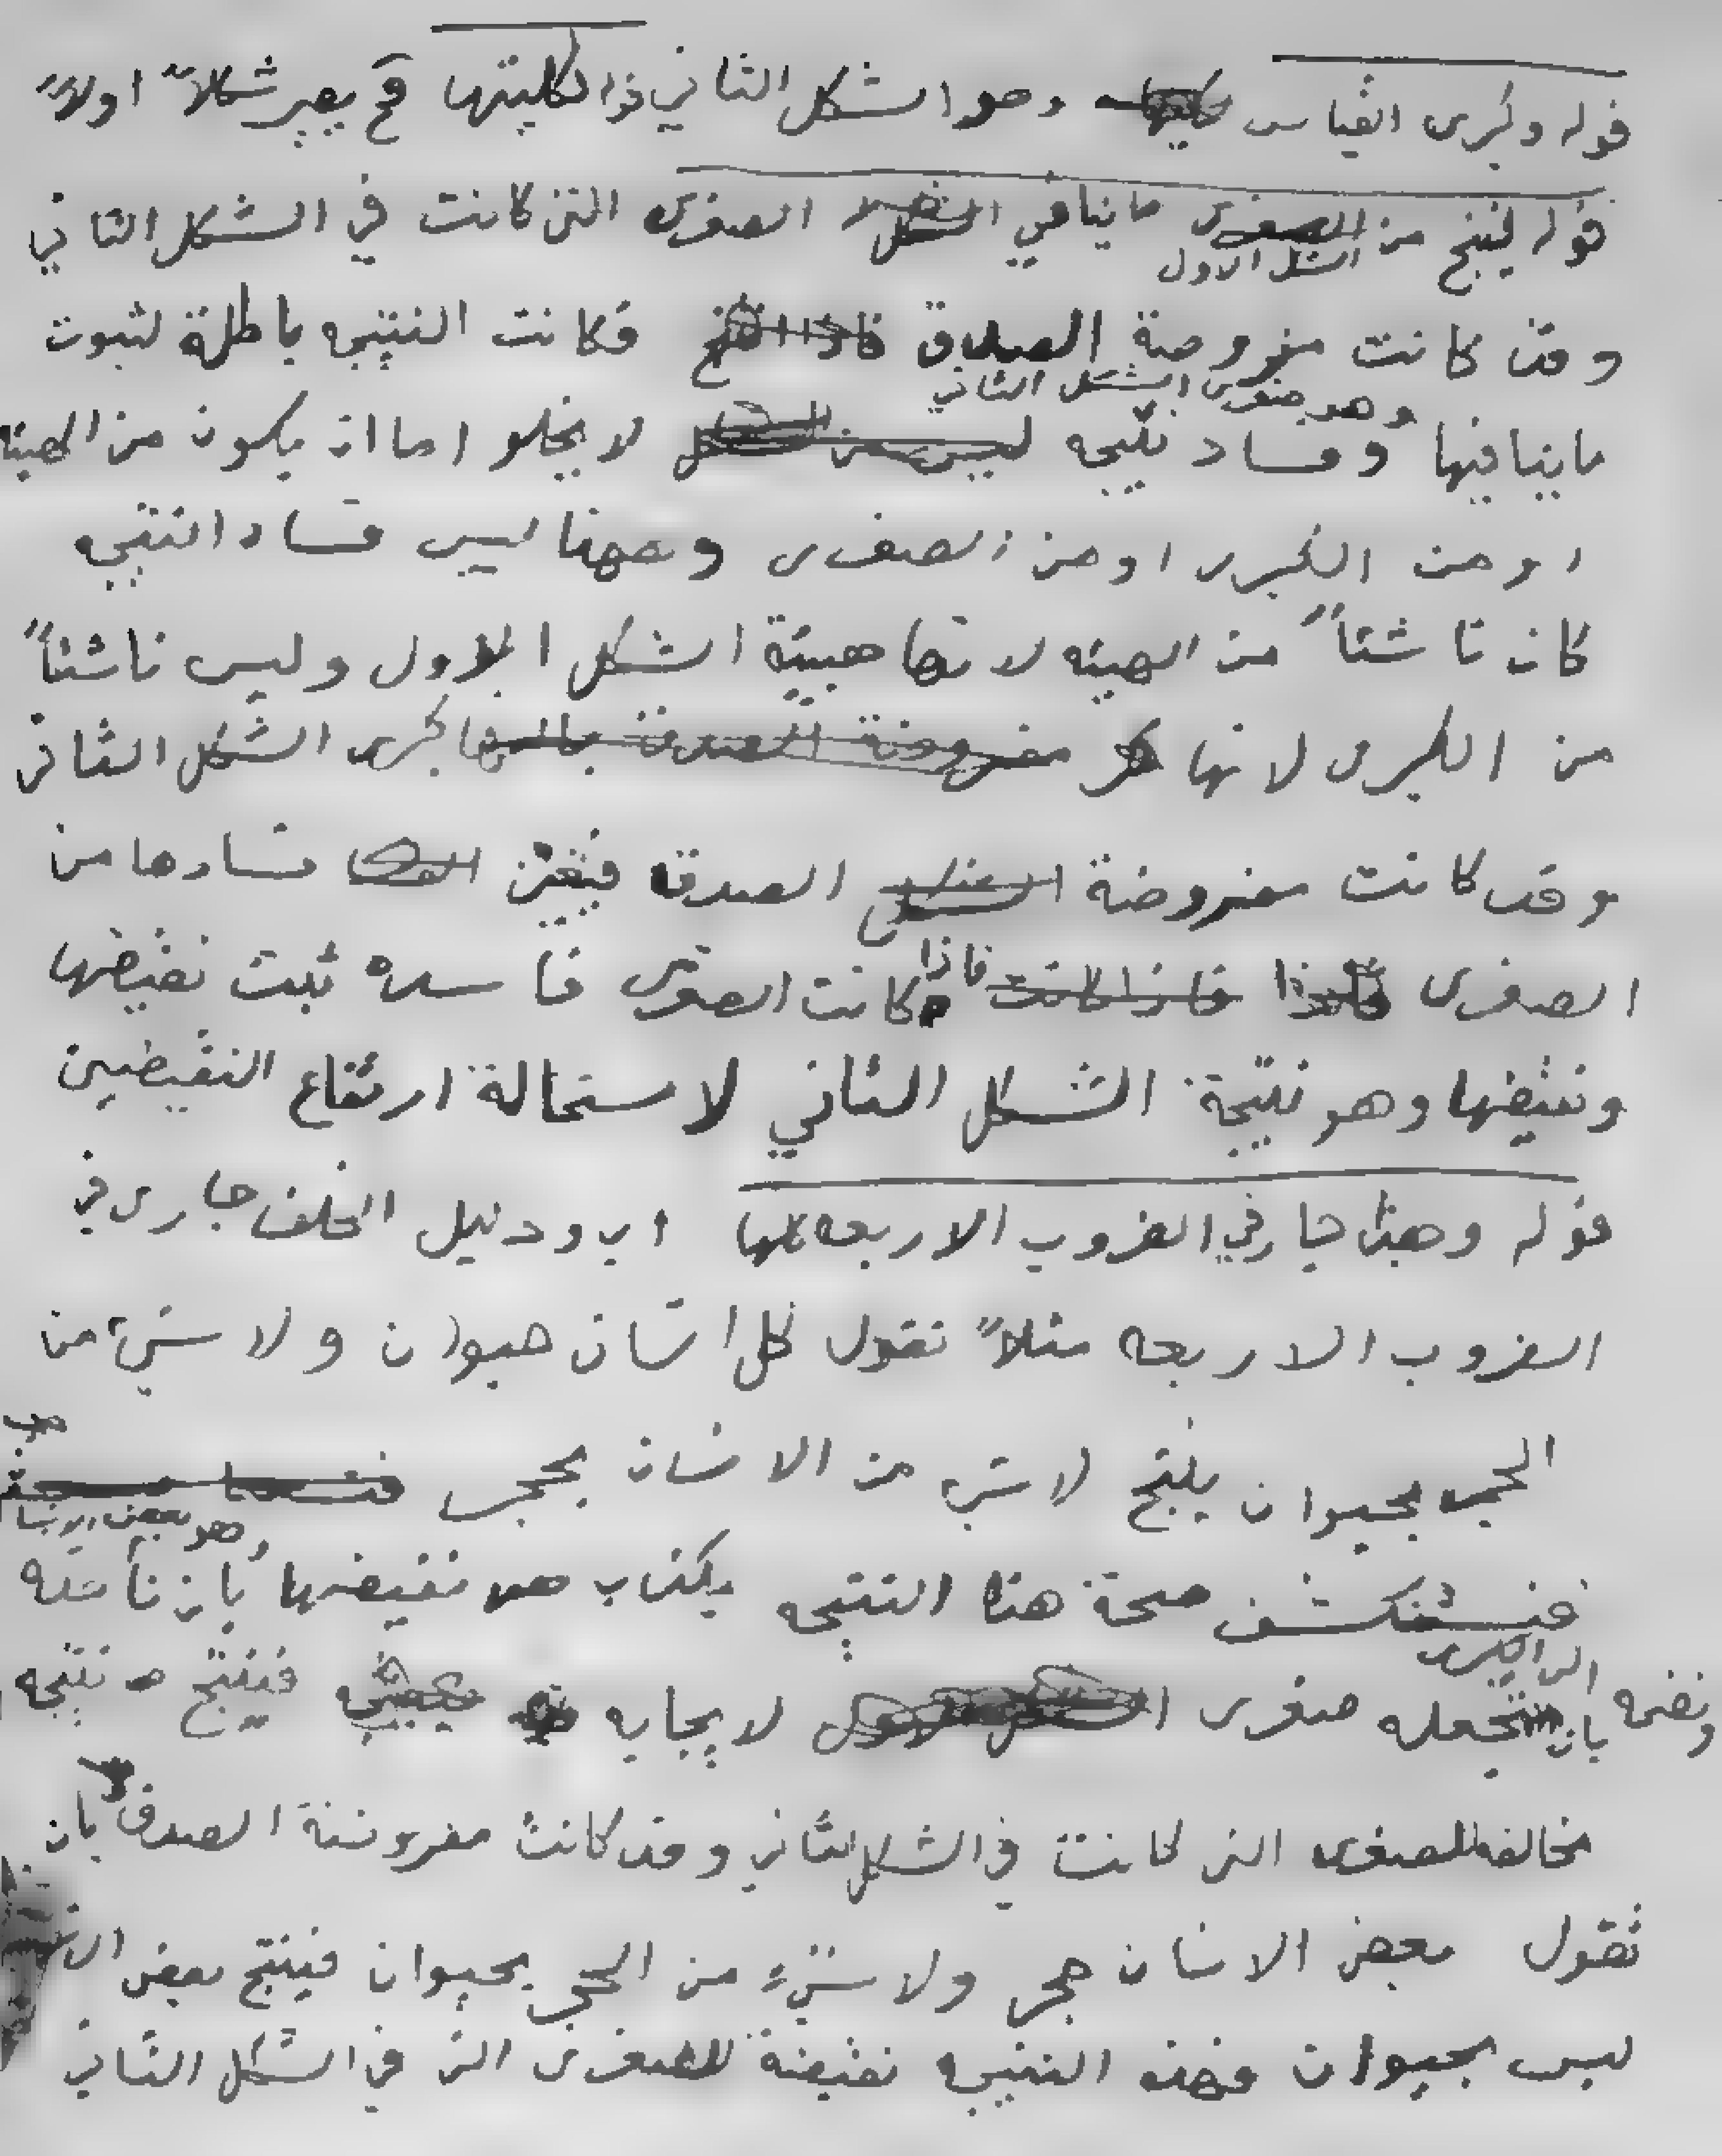 قوله وكبرى القياس وهو الشكل الثاني قوله لكليتها فح يصير شكلاً اولاً
قوله لينتج من الشكل الاول ما ينافي الصغرى التي كانت في الشكل الثاني
وقد كانت مفروضة الصدق فكانت النتيجه باطلة لثبوت
ما ينافيها وهو صغرى الشكل الثاني وفساد نتيجه لا يخلو اما ان يكون من الهيئه
او من الكبرى او من الصغرى وههنا ليس فساد النتيجه
كان ناشئاً من الهيئه لانها هيئة الشكل الاول وليس ناشئاً
من الكبرى لانها كبرى الشكل الثاني
وقد كانت مفروضة الصدق فيتعين فسادها من
الصغرى فاذا كانت الصغرى فاسده ثبت نقيضها
ونقيضها وهو نتيجة الشكل الثاني لاستحالة ارتفاع النقيضين
قوله وهذا جار في الضروب الاربعه كلها اي ودليل الخلف جارى في
الضروب الاربعه مثلاً نقول كل انسان حيوان ولا شيء من
الحجر بحيوان ينتج لا شيء من الانسان بحجر
فنستكشف صحة هذا النتيجه بكذب نقيضها وهو بعض الانسا بان نأخذه
ونضمه الى الكبرى بان نجعله صغرى لايجابه فينتج نتيجه
مخالفه للصغرى التى كانت في الشكل الثاني وقد كانت مفروضة الصدق بان
نقول بعض الانسان حجر ولا شيء من الحجر بحيوان فينتج بعض
ليس بحيوان فهذه النتيجه نقيضة للصغرى التى في الشكل الثاني